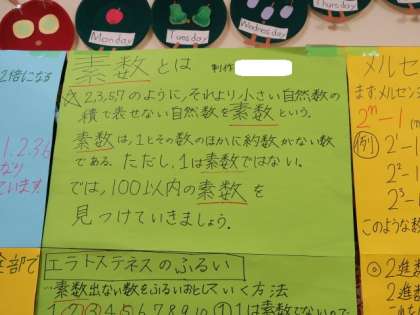 Monday
Tuesday
Wednesday
Thursday
素数とは 制作
☆2,3,5,7のように、それより小さい自然数の
積で表せない自然数を素数という。
素数は、1とその数のほかに約数がない数
である。ただし、1は素数ではない。
では、100以内の素数を
見つけていきましょう。
エラトステネスのふるい
…素数出ない数をふるいおとしていく方法
1 2 3 4 5 6 7 8 9 10 ① 1は素数でないので
2倍になる
1.2.3.6
なり
ています。
全部で
メルセン
まずメルセン
2ⁿ-1
例 2¹-1
2²-1
2³-1
このような数
◎2進数
2進